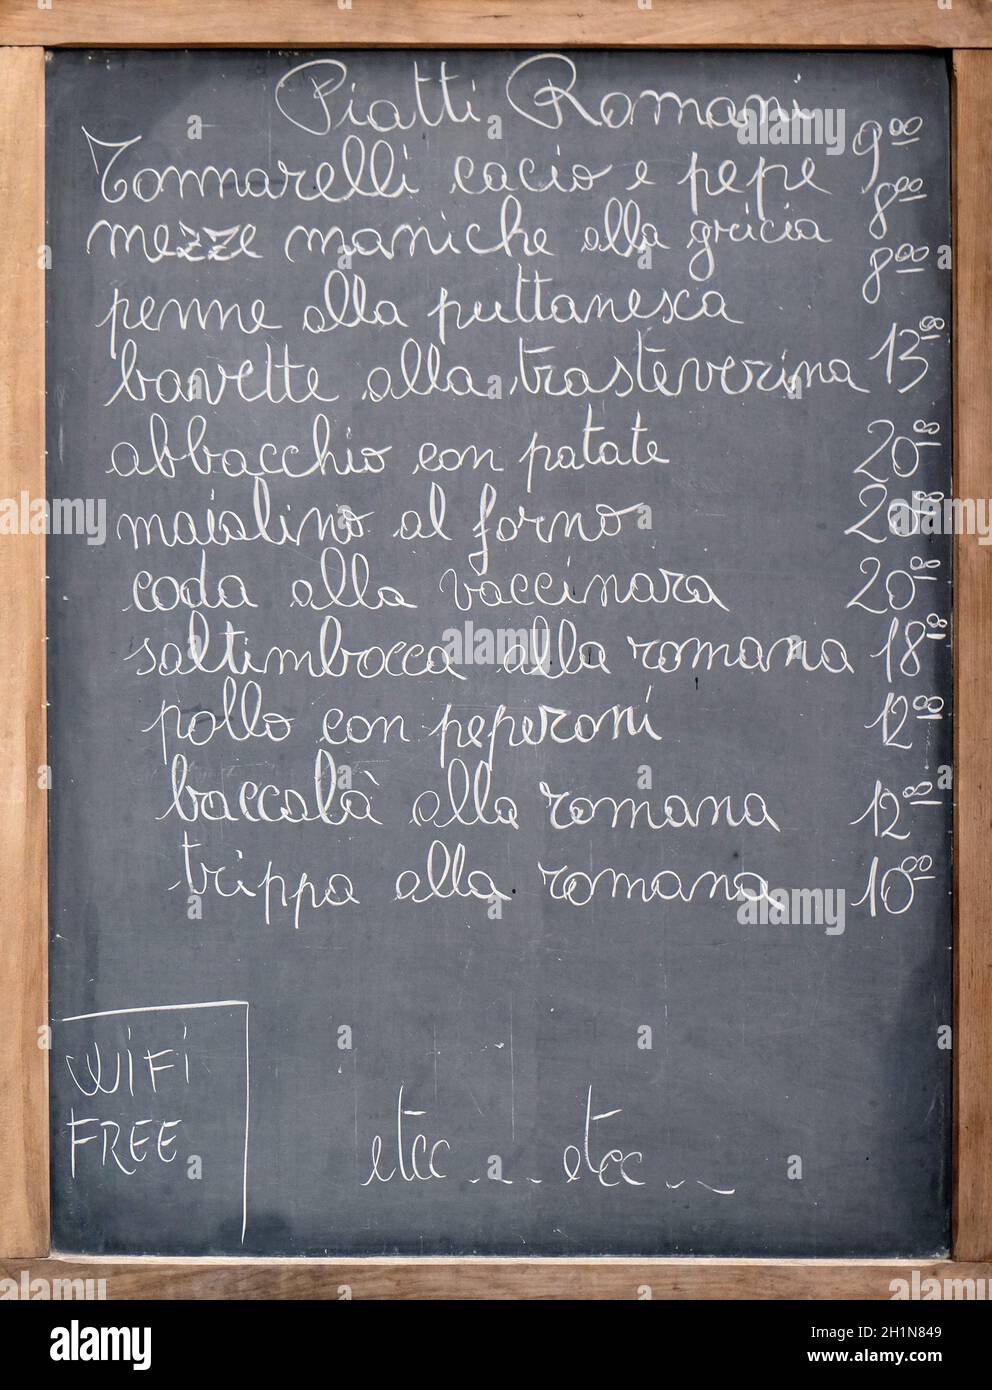 Piatti Romani
Tonnarelli cacio e pepe 9.00
mezze maniche alla gricia 8.00
penne alla puttanesca 8.00
bavette alla trasteverina 13.00
abbacchio con patate 20.00
maialino al forno 20.00
coda alla vaccinara 20.00
saltimbocca alla romana 18.00
pollo con peperoni 12.00
baccalà alla romana 12.00
trippa alla romana 10.00
WiFi
FREE
etcc ... etcc ...
alamy
Image ID: 2H1N849
www.alamy.com